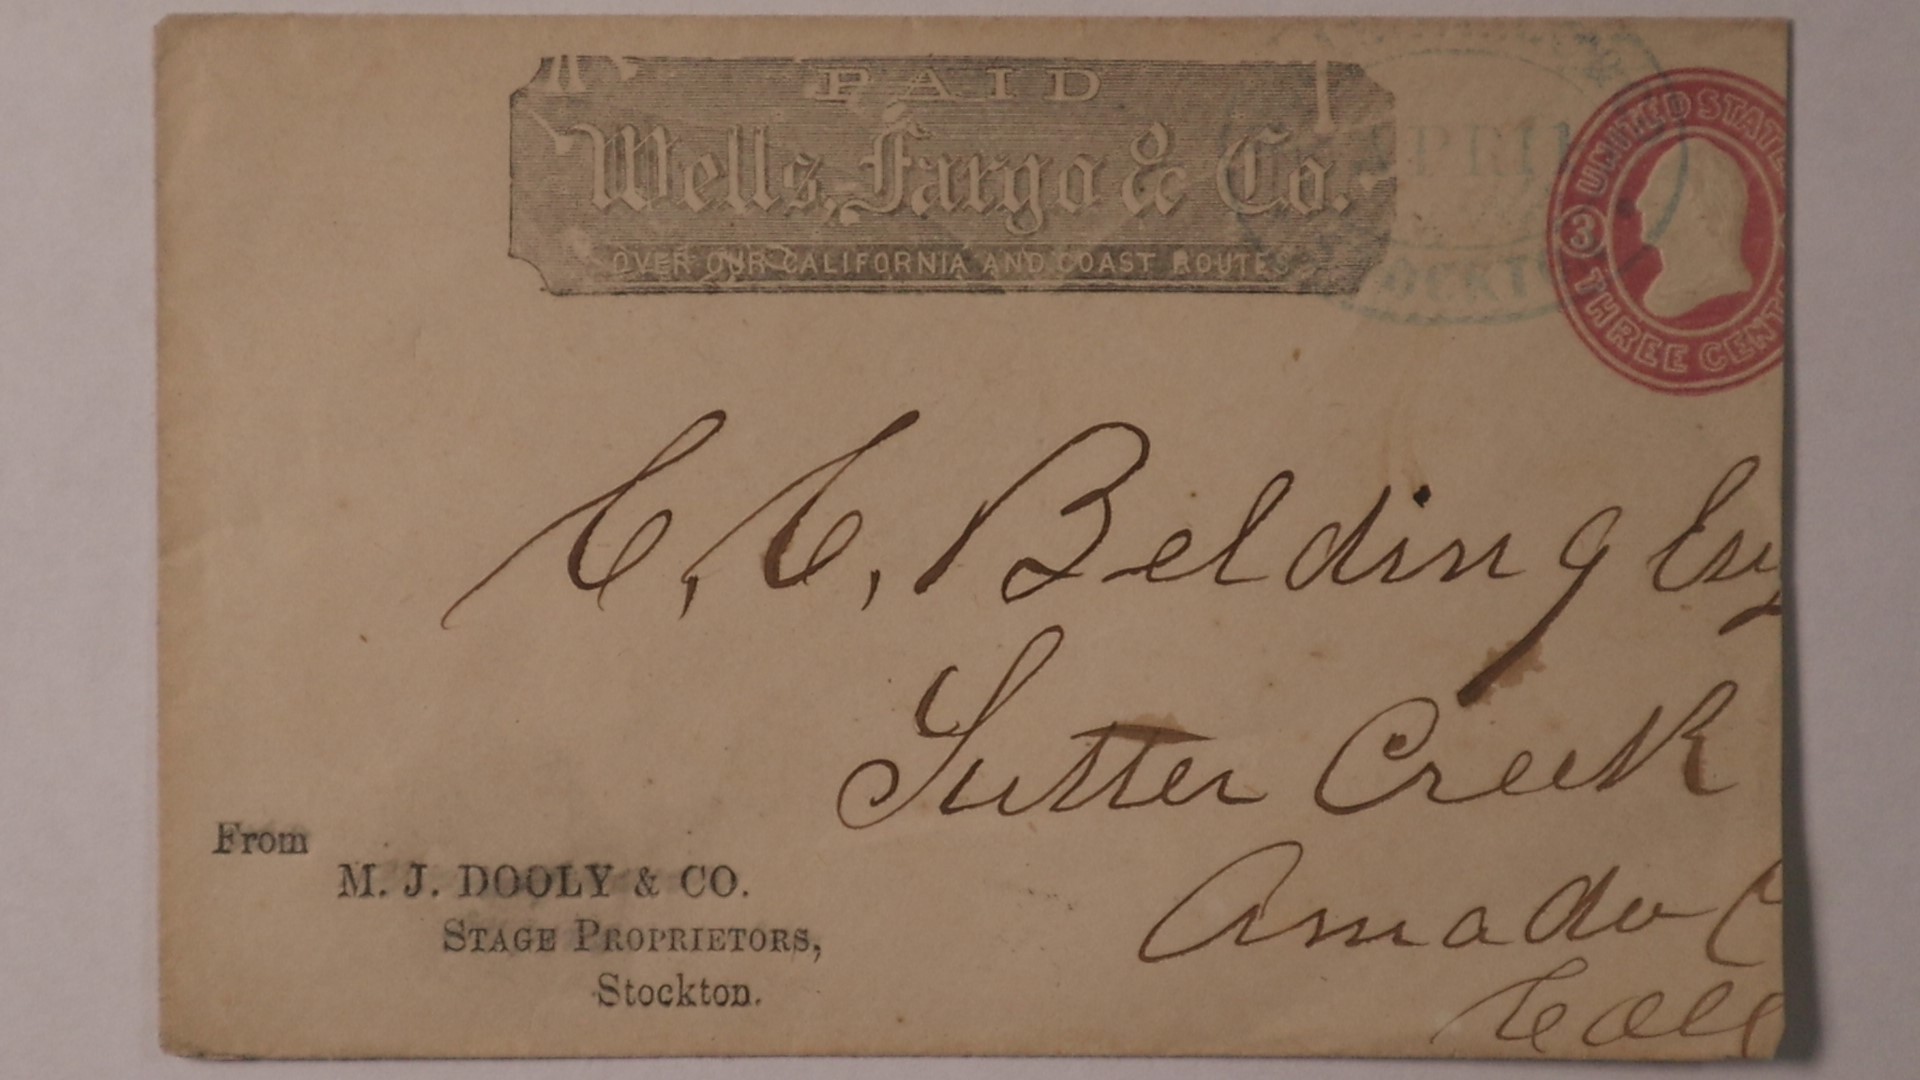 PAID
Wells, Fargo & Co.
OVER OUR CALIFORNIA AND COAST ROUTES
APRIL
UNITED STATE
3
THREE CENT
C, C, Belding Esq
Sutter Creek
Amador C
From
M. J. DOOLY & CO.
STAGE PROPRIETORS,
Stockton.